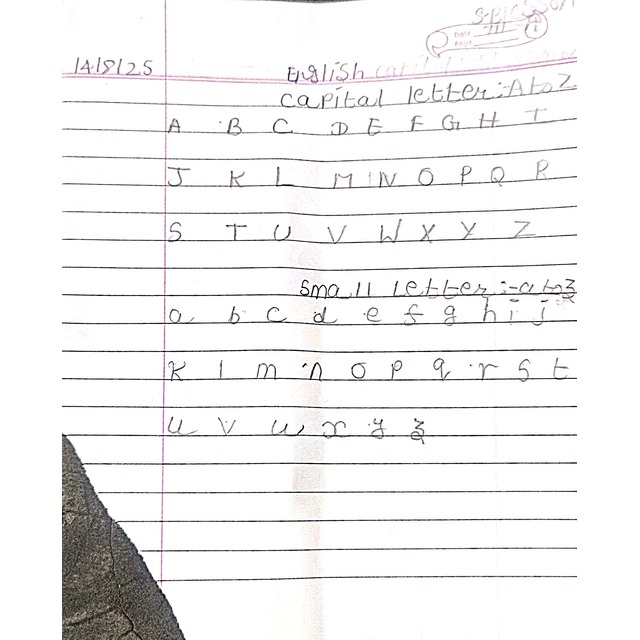 Date
Page
14/8/25
English
Capital letter:-A to Z
A B C D E F G H I
J K L M N O P Q R
S T U V W X Y Z
Small letter:-a to z
a b c d e f g h i j
K l m n o p q r s t
u v w x y z